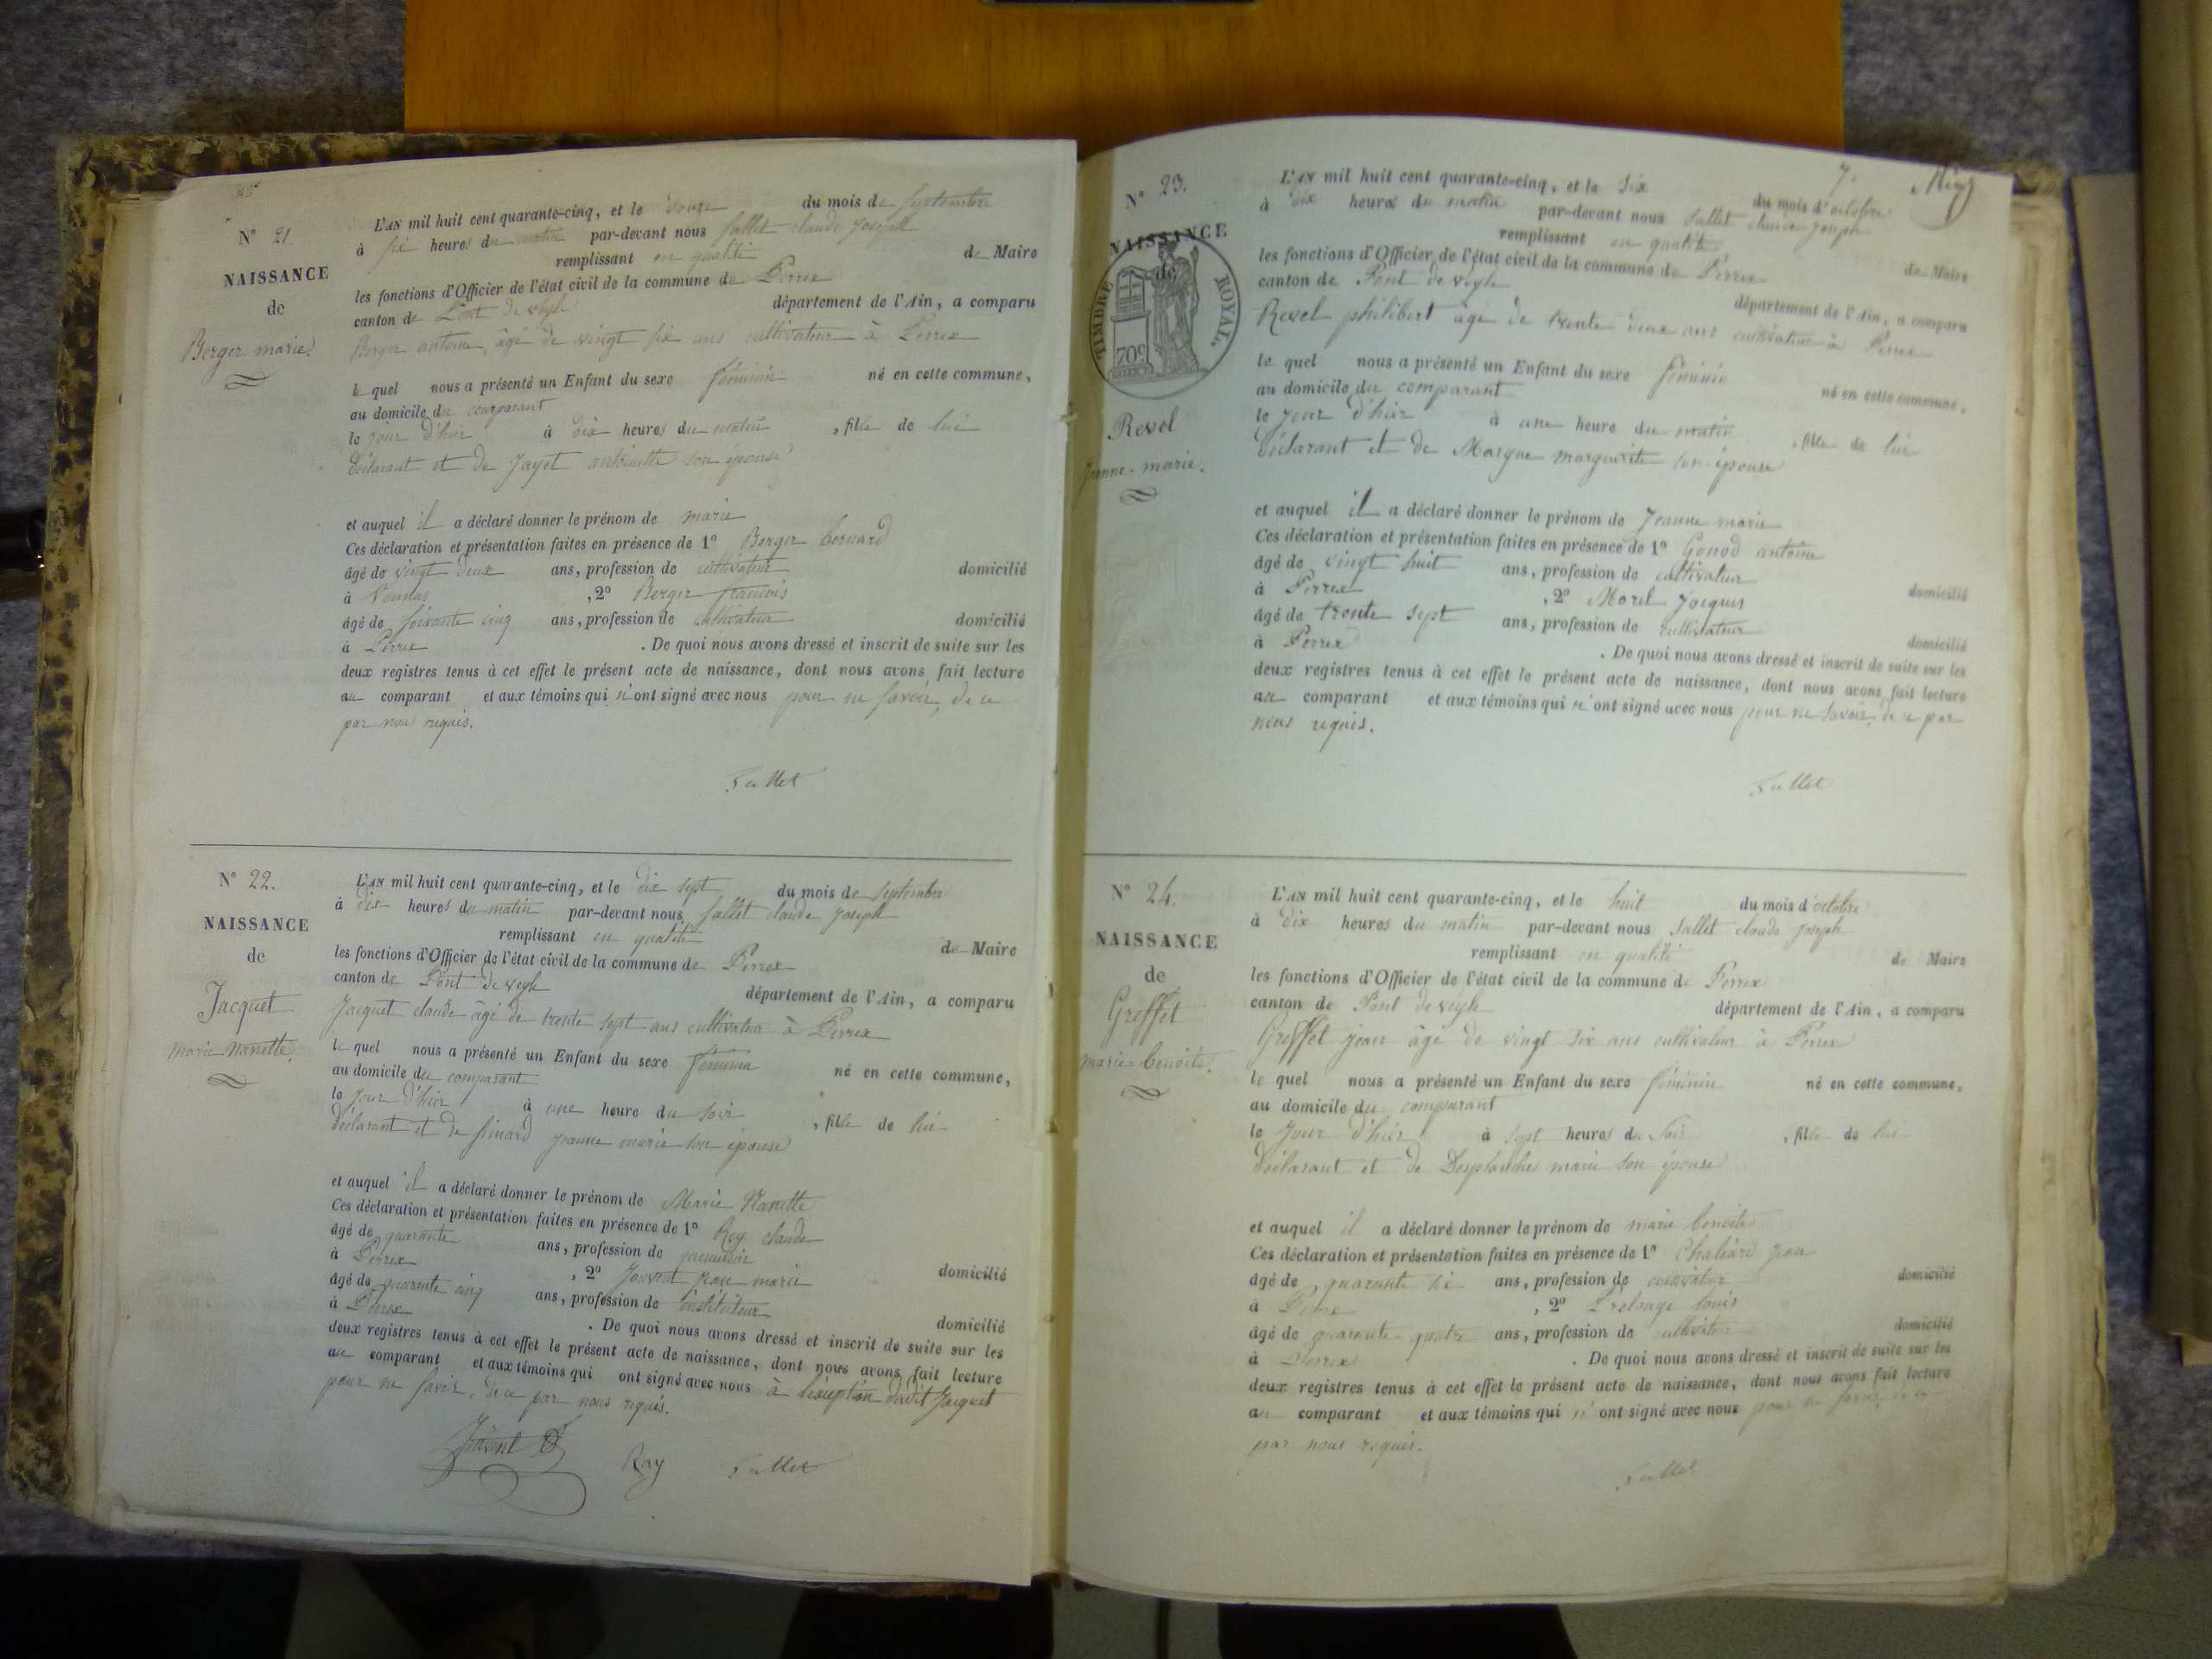 N° 21.
NAISSANCE
de
Berger marie.
L'AN mil huit cent quarante-cinq, et le douze du mois de septembre
à six heures du matin par-devant nous Sallet claude Joseph
remplissant en qualité de Maire
les fonctions d'Officier de l'état civil de la commune de Perrex
canton de Pont de veyle département de l'Ain, a comparu
Berger antoine, âgé de vingt six ans cultivateur à Perrex
le quel nous a présenté un Enfant du sexe féminin né en cette commune,
au domicile du comparant
le jour d'hier à dix heures du matin, fille de lui
déclarant et de Jayet antoinette son épouse
et auquel il a déclaré donner le prénom de marie
Ces déclaration et présentation faites en présence de 1° Berger bernard
âgé de vingt deux ans, profession de cultivateur domicilié
à Vonnas, 2° Berger francois
âgé de soixante cinq ans, profession de cultivateur domicilié
à Perrex. De quoi nous avons dressé et inscrit de suite sur les
deux registres tenus à cet effet le présent acte de naissance, dont nous avons fait lecture
au comparant et aux témoins qui n'ont signé avec nous pour ne savoir, de ce
par nous requis.
Sallet
N° 22.
NAISSANCE
de
Jacquet
marie Nanette.
L'AN mil huit cent quarante-cinq, et le dix sept du mois de septembre
à dix heures du matin par-devant nous Sallet claude Joseph
remplissant en qualité de Maire
les fonctions d'Officier de l'état civil de la commune de Perrex
canton de Pont de veyle département de l'Ain, a comparu
Jacquet claude âgé de trente sept ans cultivateur à Perrex
le quel nous a présenté un Enfant du sexe féminin né en cette commune,
au domicile du comparant
le jour d'hier à une heure du soir, fille de lui
déclarant et de simard jeanne marie son épouse
et auquel il a déclaré donner le prénom de Marie Nanette
Ces déclaration et présentation faites en présence de 1° Rey claude
âgé de quarante ans, profession de domicilié
à Perrex, 2° Jouvent jean marie
âgé de quarante cinq ans, profession de instituteur domicilié
à Perrex. De quoi nous avons dressé et inscrit de suite sur les
deux registres tenus à cet effet le présent acte de naissance, dont nous avons fait lecture
au comparant et aux témoins qui ont signé avec nous à l'exception dudit Jacquet
pour ne savoir, de ce par nous requis.
Jouvent Ray Sallet
7.
N° 23.
NAISSANCE
de
TIMBRE ROYAL.
70c
Revel
Jeanne-marie.
L'AN mil huit cent quarante-cinq, et le six du mois d'octobre
à dix heures du matin par-devant nous Sallet claude Joseph
remplissant en qualité de Maire
les fonctions d'Officier de l'état civil de la commune de Perrex
canton de Pont de veyle département de l'Ain, a comparu
Revel philibert âgé de trente deux ans cultivateur à Perrex
le quel nous a présenté un Enfant du sexe féminin né en cette commune,
au domicile du comparant
le jour d'hier à une heure du matin, fille de lui
déclarant et de Morgue marguerite son épouse
et auquel il a déclaré donner le prénom de Jeanne marie
Ces déclaration et présentation faites en présence de 1° Gonod antoine
âgé de vingt huit ans, profession de cultivateur domicilié
à Perrex, 2° Morel Jacques
âgé de trente sept ans, profession de cultivateur domicilié
à Perrex. De quoi nous avons dressé et inscrit de suite sur les
deux registres tenus à cet effet le présent acte de naissance, dont nous avons fait lecture
au comparant et aux témoins qui n'ont signé avec nous pour ne savoir, de ce par
nous requis.
Sallet
N° 24.
NAISSANCE
de
Greffet
marie-benoite.
L'AN mil huit cent quarante-cinq, et le huit du mois d'octobre
à dix heures du matin par-devant nous Sallet claude Joseph
remplissant en qualité de Maire
les fonctions d'Officier de l'état civil de la commune de Perrex
canton de Pont de veyle département de l'Ain, a comparu
Greffet jean âgé de vingt six ans cultivateur à Perrex
le quel nous a présenté un Enfant du sexe féminin né en cette commune,
au domicile du comparant
le jour d'hier à sept heures du soir, fille de lui
déclarant et de Desplanches marie son épouse
et auquel il a déclaré donner le prénom de marie benoite
Ces déclaration et présentation faites en présence de 1° jean
âgé de quarante six ans, profession de cultivateur domicilié
à Perrex, 2° louis
âgé de quarante quatre ans, profession de cultivateur domicilié
à Perrex. De quoi nous avons dressé et inscrit de suite sur les
deux registres tenus à cet effet le présent acte de naissance, dont nous avons fait lecture
au comparant et aux témoins qui n'ont signé avec nous pour ne savoir, de ce
par nous requis.
Sallet